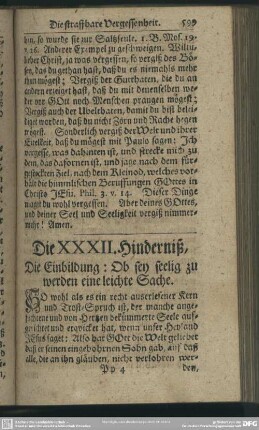 Die straffbare Vergessenheit. 599
hin, so wurde sie zur Saltzseule. 1. B. Mos. 19.
v. 26. Anderer Exempel zu geschweigen. Wiltu
lieber Christ, ja was vergessen, so vergiß des Bö-
ses, das du gethan hast, daß du es niemahls mehr
thun mögest; Vergiß der Gutthaten, die du an
andern erzeiget hast, daß du mit denenselben we-
der vor Gott noch Menschen prangen mögest;
Vergiß auch der Ubelthaten, damit du bist belei-
diget worden, daß du nicht Zorn und Rache hegen
mögest. Sonderlich vergiß der Welt und ihrer
Eitelkeit, daß du mögest mit Paulo sagen: Ich
vergesse, was dahinten ist, und strecke mich zu
dem, das dafornen ist, und jage nach dem für-
gesteckten Ziel, nach dem Kleinod, welches vor-
hält die himmlischen Beruffungen GOttes in
Christo JEsu, Phil. 3. v. 14. Dieser Dinge
magst du wohl vergessen. Aber deines GOttes,
und deiner Seel und Seeligkeit vergiß nimmer-
mehr! Amen.
Die XXXII. Hinderniß,
Die Einbildung: Ob sey seelig zu
werden eine leichte Sache.
SO wohl als es ein recht auserlesener Kern
und Trost-Spruch ist, der manche ange-
fochtene und von Hertzen bekümmerte Seele auf-
gerichtet und erqvicket hat, wenn unser Heyland
JEsus saget: Also hat GOtt die Welt geliebet
daß er seinen eingebohrnen Sohn gab, auf daß
alle, die an ihn gläuben, nicht verlohren wer-
Pp 4 den,